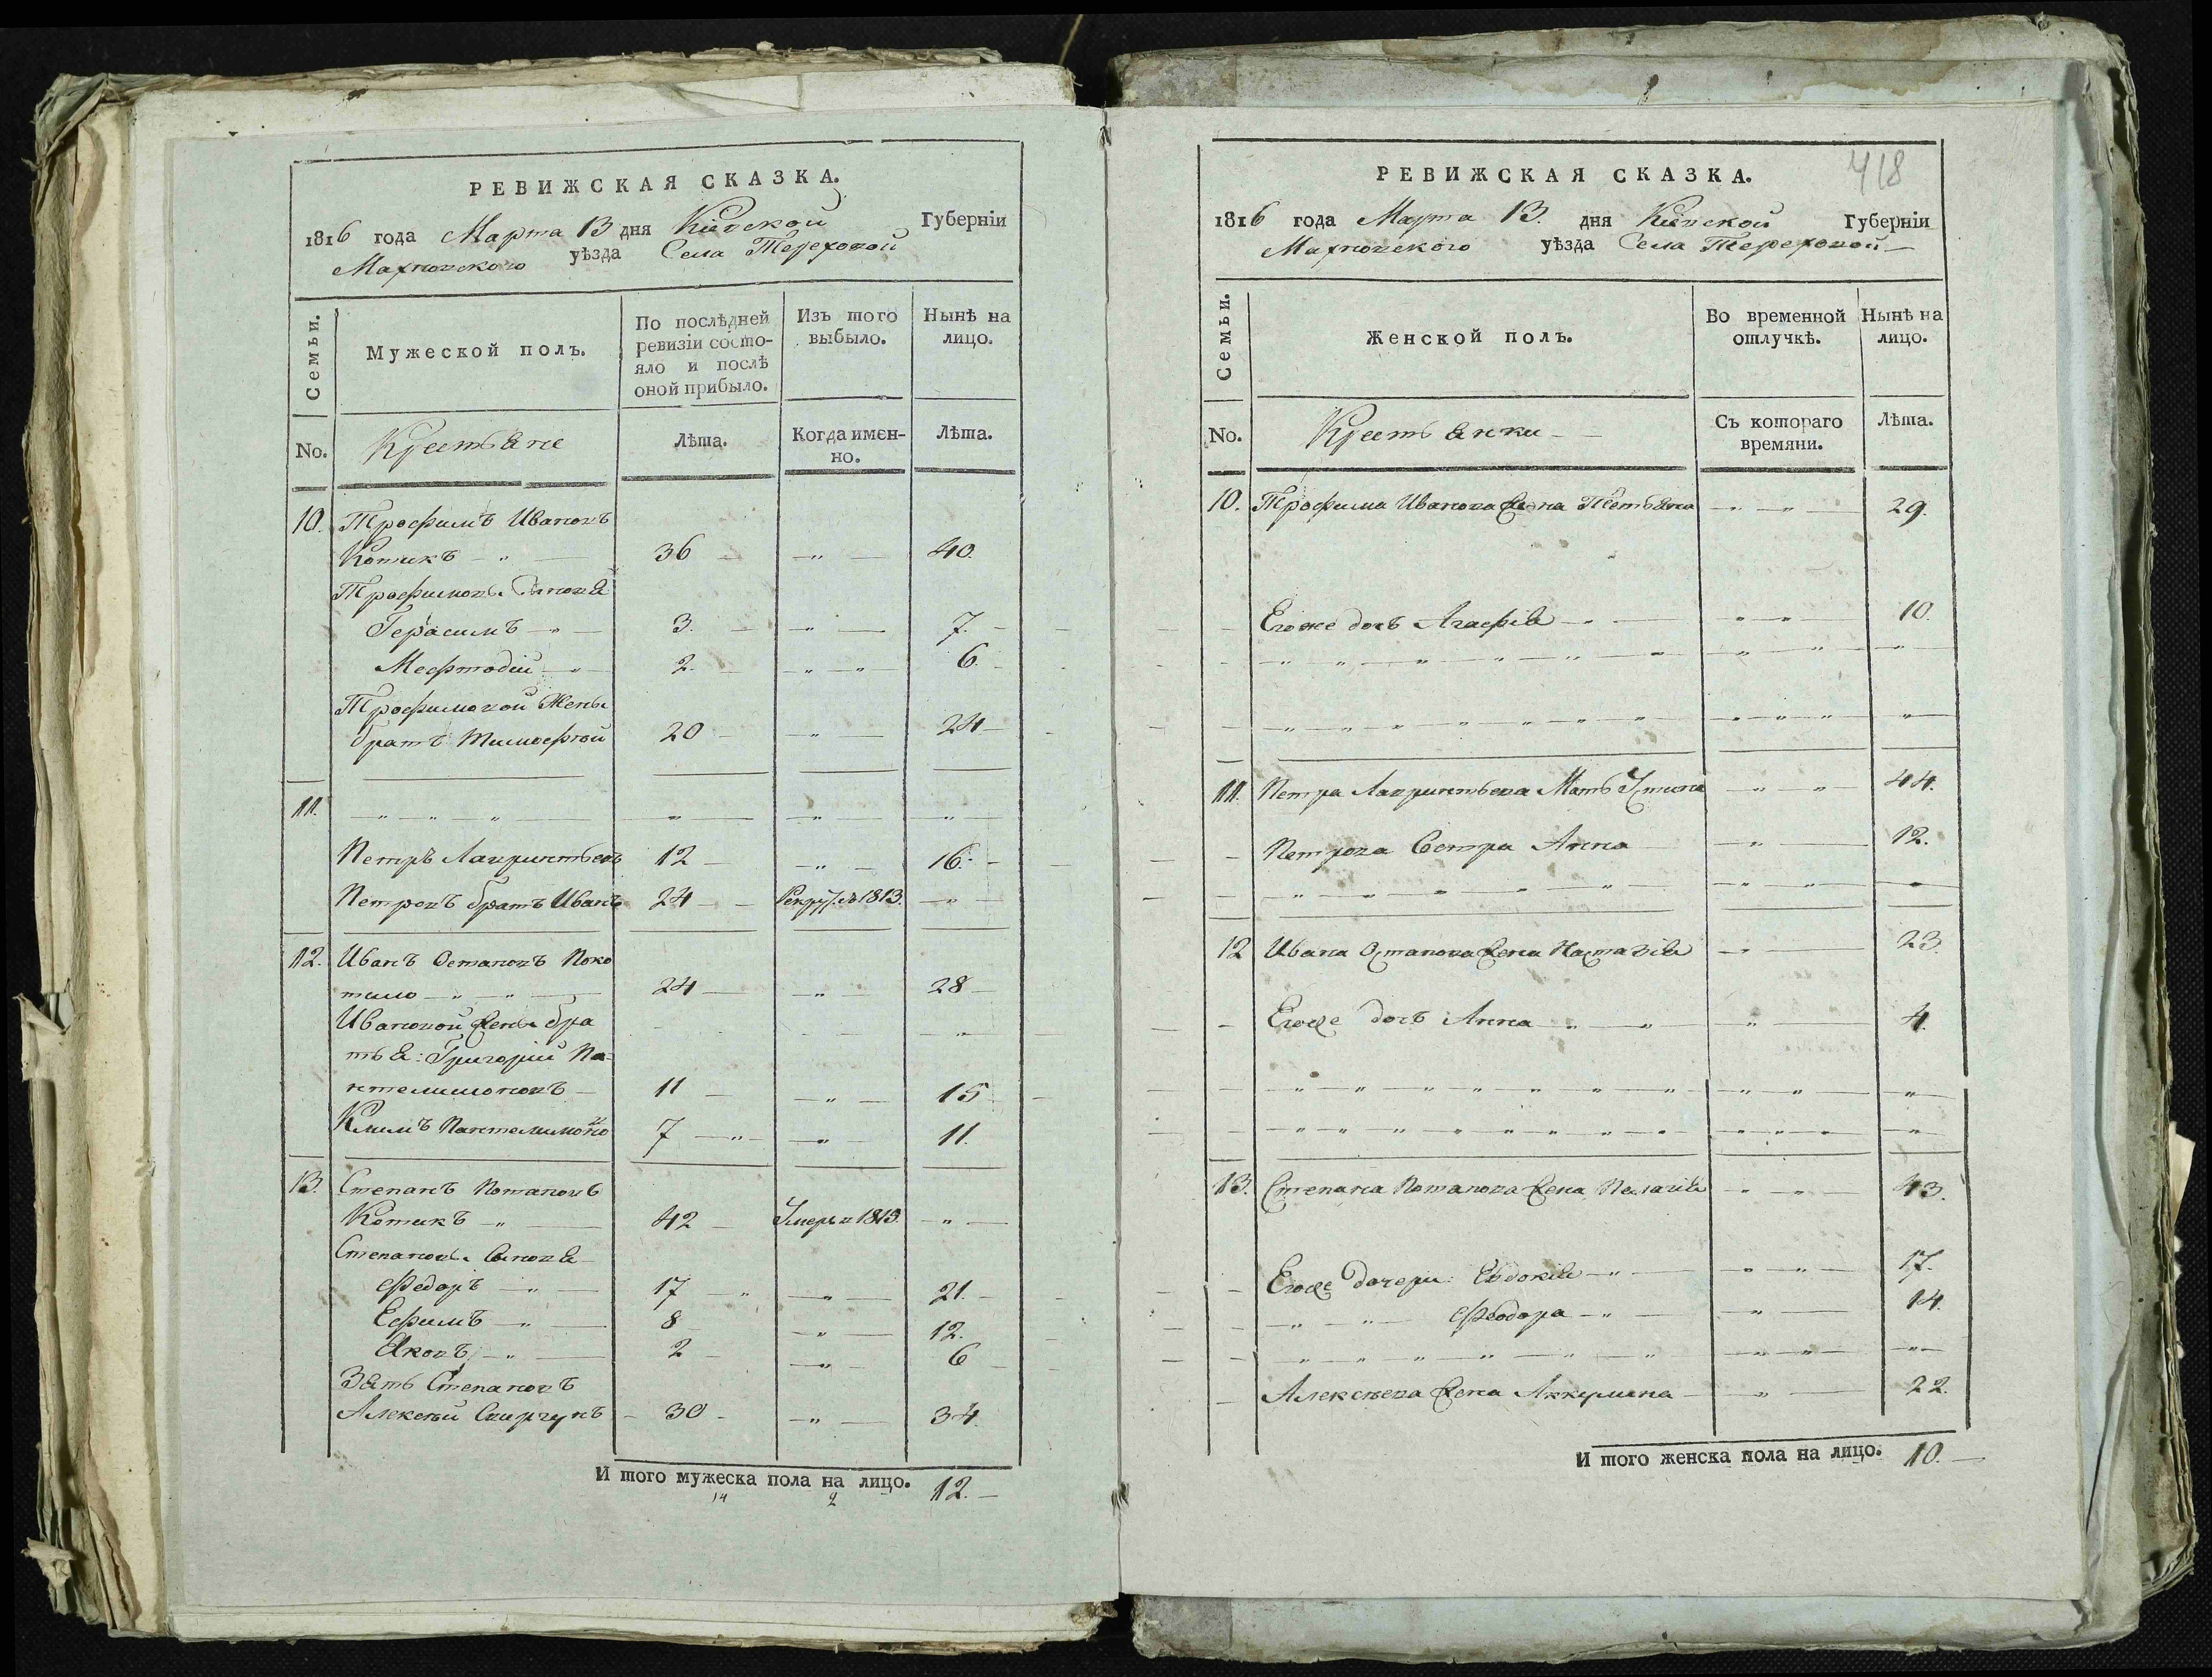 РЕВИЖСКАЯ СКАЗКА.
1816 года Марта 13 дня Кіевской Губерніи
Махновского уѣзда Села Тереховой
Семьи.
Мужеской полъ.
По послѣдней
ревизіи состо-
яло и послѣ
оной прибыло.
Изъ того
выбыло.
Нынѣ на
лицо.
No.
Крестьяне
Лѣта.
Когда имен-
но.
Лѣта.
10. Трофимъ Ивановъ
Котикъ 36 40.
Трофимовы Сыновя
Герасимъ 3. 7.
Мефтодій 2. 6.
Трофимовой Жены
братъ Тимофтей 20 24
11.
Петръ Лавринтьевъ 12 16.
Петровъ братъ Иванъ 24 Рекру: въ 1813.
12. Иванъ Остаповъ Поко
тило 24 28
Ивановой жены бра
тья: Григорій Па-
нтелимоновъ 11 15
Климъ Пантелимоно 7 11.
13. Степанъ Потаповъ
Котикъ 42 Умеръ в 1813.
Степановы Сыновя
Федоръ 17 21.
Ефимъ 8 12.
Яковъ 2 6
Зять Степановъ
Алексѣй 30 34
И того мужеска пола на лицо. 12.
14 2
418
РЕВИЖСКАЯ СКАЗКА.
1816 года Марта 13. дня Кіевской Губерніи
Махновского уѣзда Села Тереховой
Семьи.
Женской полъ.
Во временной
отлучкѣ.
Нынѣ на
лицо.
No.
Крестьянки
Съ котораго
времяни.
Лѣта.
10. Трофима Иванова жена Тетьяна 29.
Егоже дочь Агафія 10.
11. Петра Лавринтьева Мать Устина 44.
Петрова Сестра Анна 12.
12 Ивана Остапова жена Настазія 23.
Егоже дочь Анна 4.
13. Степана Потапова жена Пелагія 43.
Егоже дочери: Евдокія 17.
Феодора 14.
Алексѣева жена Аккулина 22.
И того женска пола на лицо. 10.